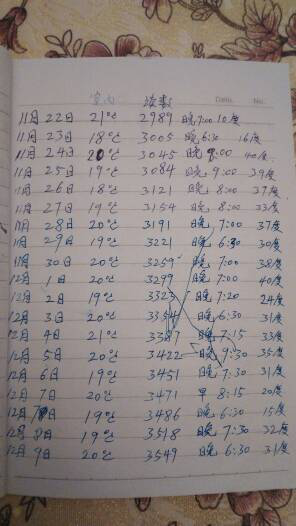 室内 读数 Date. No.
11月22日 21℃ 2989 晚7:00 10度
11月23日 18℃ 3005 晚6:30 16度
11月24日 20℃ 3045 晚9:00 40度
11月25日 19℃ 3084 晚7:00 39度
11月26日 18℃ 3121 晚8:00 37度
11月27日 19℃ 3154 晚8:00 33度
11月28日 20℃ 3191 晚7:00 37度
11月29日 19℃ 3221 晚6:30 30度
11月30日 20℃ 3259 晚7:00 38度
12月1日 20℃ 3299 晚7:00 40度
12月2日 19℃ 3323 晚7:20 24度
12月3日 20℃ 3354 晚6:30 31度
12月4日 21℃ 3387 晚7:15 33度
12月5日 20℃ 3422 晚9:30 35度
12月6日 19℃ 3451 晚7:30 31度
12月7日 20℃ 3471 早8:15 20度
12月7日 19℃ 3486 晚6:30 15度
12月8日 19℃ 3518 晚7:30 32度
12月9日 20℃ 3549 晚6:30 31度